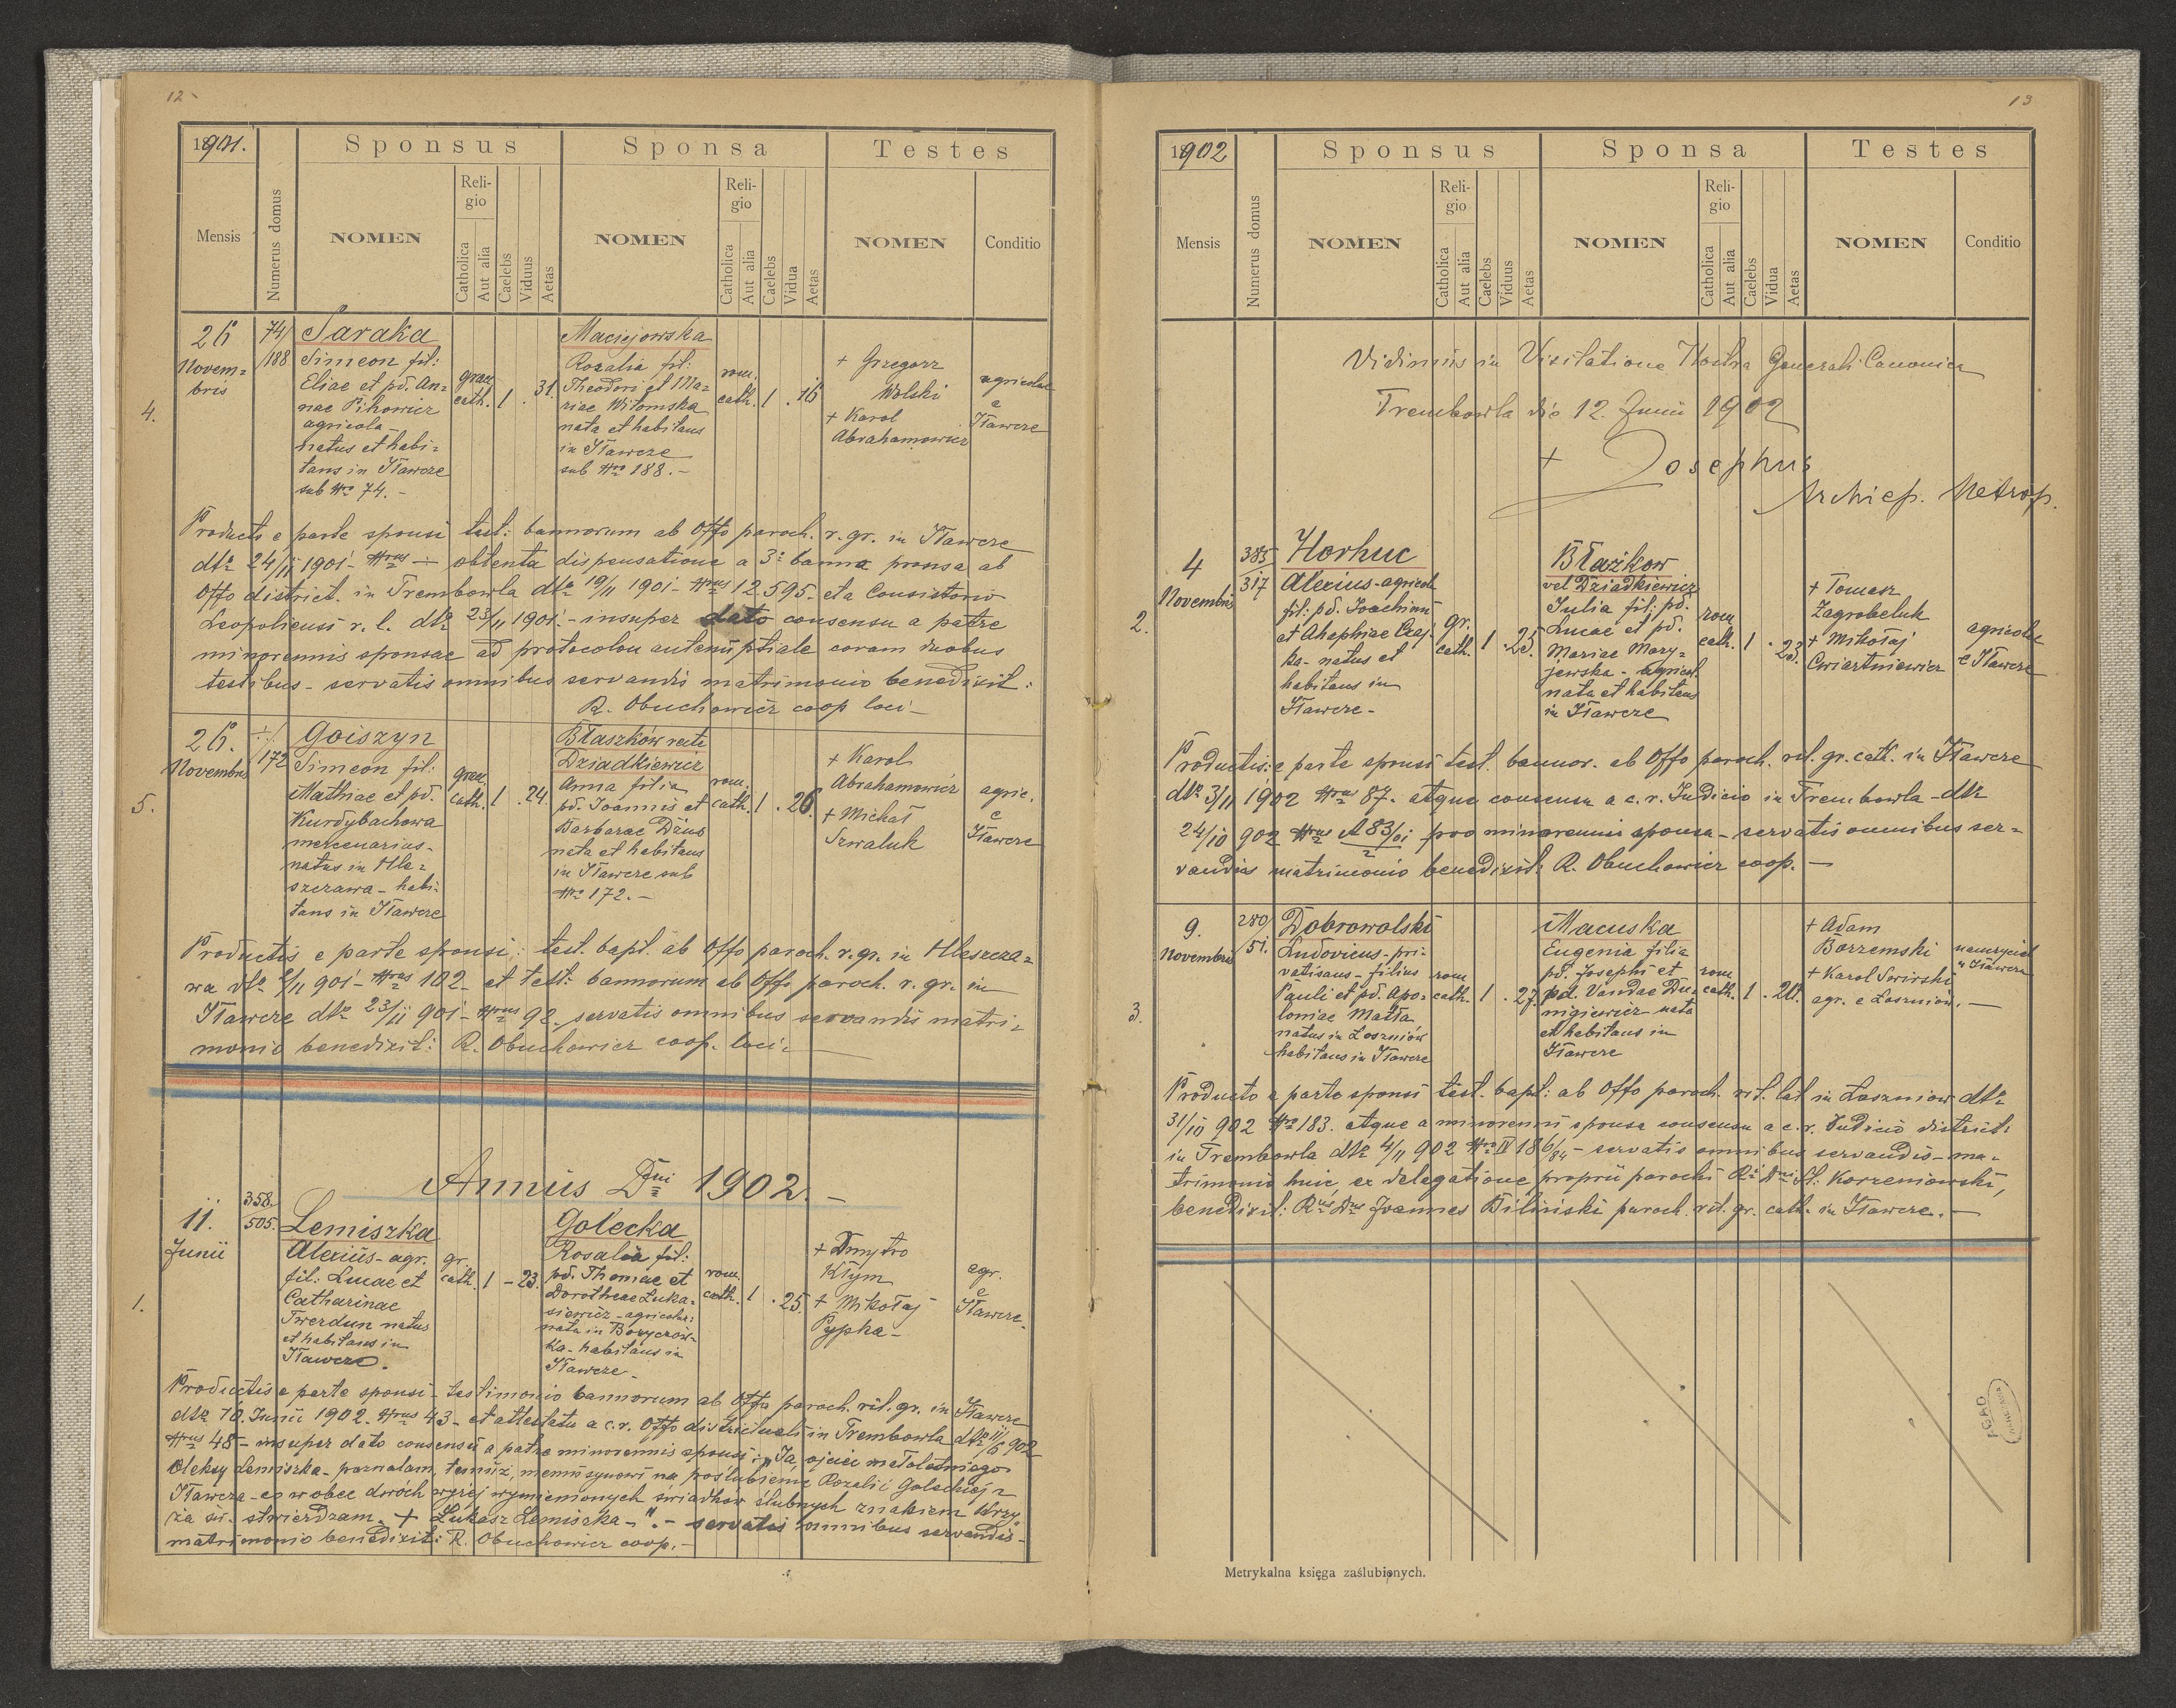 12
1901.
Sponsus
Sponsa
Testes
Mensis
Numerus domus
NOMEN
Religio
Catholica
Aut alia
Caelebs
Viduus
Aetas
NOMEN
Religio
Catholica
Aut alia
Caelebs
Vidua
Aetas
NOMEN
Conditio
4.
26
Novem=
bris
74/
/188
Saraka
Simeon fil:
Eliae et pd. An=
nae Pihowicz
agricola
natus et habi=
tans in Iławcze
sub Nro 74.-
graec.
cath.
1 . 31.
Maciejowska
Rozalia fil:
Theodori et Ma=
riae Witomska
nata et habitans
in Iławcze
sub Nro 188.-
rom.
cath. 1 . 16
+ Grzegorz
Wolski
+ Karol
Abrahamowicz
agricolae
e
Iławcze
Producto e parte sponsi test: bannorum ab Offo paroch. r. gr. in Iławcze
dto 24/11 1901- Nrus ÷ obtenta dispensatione a 3o banno pronsa ab
Offo district. in Trembowla dto 19/11 1901- Nrus 12.595- et a Consistorio
Leopoliensi r. l. dto 23/11 1901.- insuper dato consensu a patre
minorennis sponsae ad protocolou antenuptiale coram duobus
testibus- servatis omnibus servandis matrimonio benedixit:
R. Obuchowicz coop loci-
5.
26.
Novembris
÷/
/172
Goiszyn
Simeon fil:
Mathiae et pd.
Kurdybachowa
mercenarius-
natus in Hle=
szczawa- habi=
tans in Iławcze
graec.
cath. 1 . 24.
Błaszków recte
Dziadkiewicz
Anna filia
pd. Joannis et
Barbarae Dżus
nata et habitans
in Iławcze sub
Nro 172.-
rom.
cath. 1 . 26.
+ Karol
Abrahamowicz
+ Michał
Szwaluk
agric.
e
Iławcze
Productis e parte sponsi: test. bapt. ab Offo paroch. r. gr. in Hleszcza=
wa dto 2/11 901- Nrus 102- et test: bannorum ab Offo paroch. r. gr. in
Iławcze dto 23/11 901- Nrus 92, servatis omnibus servandis matri=
monio benedixit: R. Obuchowicz coop. loci.
Annus Dni 1902.-
1.
11.
Junii
358.
505.
Lemiszka
Alexius- agr.
fil: Lucae et
Catharinae
Twerdun natus
et habitans in
Iławcze.
gr.
cath. 1 - 23.
Golecka
Rosalia fil:
pd. Thomae et
Dorotheae Łuka=
siewicz- agricolar:
nata in Boryczów=
ka- habitans in
Iławcze-
rom.
cath. 1 . 25.
+ Dmytro
Kłym
+ Mikołaj
Pypka-
agr.
e
Iławcze.
Productis e parte sponsi- testimonio bannorum ab Offo paroch. rit. gr. in Iławcze
dto 10. Junii 1902. Nrus 43- et attestatu a c. r. Offo districtuali in Trembowla dto 11/6 902
Nrus 48- insuper dato consensu a patre minorennis sponsi: „Ja ojciec małoletniego
Oleksy Lemiszka- pozwalam, temuż, memu synowi na poślubienie Rozalii Goleckiej z
Iławcza- co w obec dwóch wyżej wymienionych świadków ślubnych znakiem krzy=
ża św. stwierdzam. + Łukasz Lemiszka-".- servatis omnibus servandis-
matrimonio benedixit: R. Obuchowicz coop.-
13
1902
Sponsus
Sponsa
Testes
Mensis
Numerus domus
NOMEN
Religio
Catholica
Aut alia
Caelebs
Viduus
Aetas
NOMEN
Religio
Catholica
Aut alia
Caelebs
Vidua
Aetas
NOMEN
Conditio
Vidimus in Visitatione Nostra Generali Canonica
Trembowla die 12. Junii 1902
+ Josephus
Archiep. Metrop.
2.
4
Novembris
385/
317
Horhuc
Alexius- agricol.
fil: pd. Joachimi
et Ahaphiae Czaj=
ka- natus et
habitans in
Iławcze-
gr.
cath. 1 . 25.
Błażkow
vel Dziadkiewicz
Julia fil: pd.
Lucae et pd.
Mariae Mary=
jewska- agricol.
nata et habitans
in Iławcze
rom.
cath. 1 . 23.
+ Tomasz
Zagrobeluk
+ Mikołaj
Cwiartniewicz
agricolae
e Iławcze
Productis: e parte sponsi test. bannor. ab Offo paroch. rit. gr. cath. in Iławcze
dto 3/11 1902 Nrus 87- atque consensu a c. r. Judicio in Trembowla- dto
24/10 902 Nrus A 83/01 pro minorenni sponsa- servatis omnibus ser=
2
vandis matrimonio benedixit: R. Obuchowicz coop.-
3.
9.
Novembris
280/
51.
Dobrowolski
Ludovicus- pri=
vatisans- filius
Pauli et pd. Apo=
loniae Matła
natus in Łoszniów
habitans in Iławcze
rom.
cath. 1 . 27.
Macuska
Eugenia filia
pd. Josephi et
pd. Vandae Du=
nigiewicz nata
et habitans in
Iławcze
rom.
cath. 1 . 20.
+ Adam
Borzemski
+ Karol Swirski
agr. e Łoszniów.-
nauczyciel
w Iławcze
Producto e parte sponsi test. bapt: ab Offo paroch. rit. lat in Łoszniów dto
31/10 902 Nro 183. atque a minorenni sponsa consensu a c. r. Judicio district:
in Trembowla dto 4/11 902 Nro IV 186/84- servatis omnibus servandis- ma=
trimonio huic ex delegatione proprii parochi Rmi Dni St. Korzeniowski,
benedixit: Rus Dnus Joannes Biliński paroch. rit. gr. cath. in Iławcze.-
AGAD
Metrykalna księga zaślubionych.